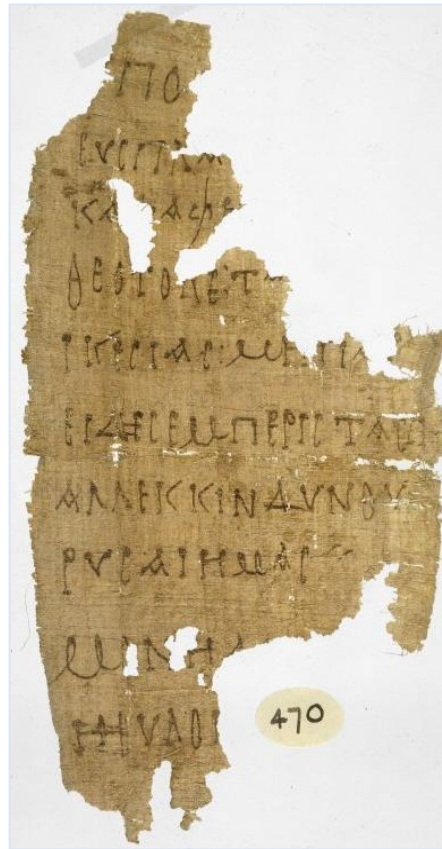 ΠΟ
ΕΥCΠΛΑ
ΚΑΤΑΦΕ
ΘΕΟΤΟΚΕΤ
ΙΚΕCΙΑCΜΗΠΑ
ΕΙΔΗCΕΜΠΕΡΙCΤΑC
ΑΛΛΕΚΚΙΝΔΥΝΟΥ
ΡΥCΑΙΗΜΑC
ΜΟΝΗ
ΗΕΥΛΟΓ
470